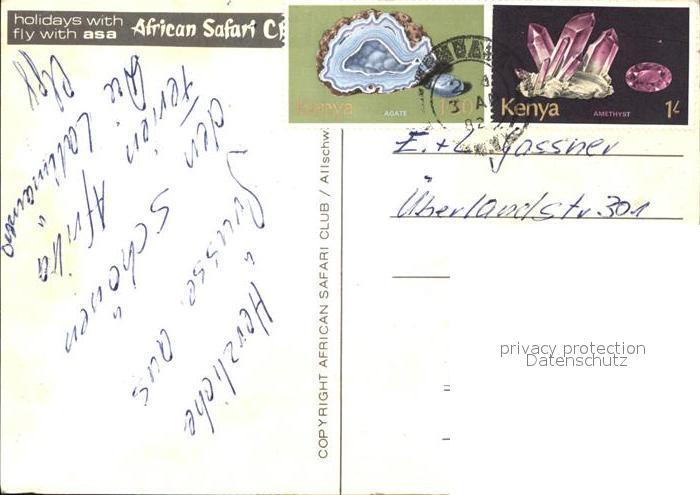 holidays with
fly with asa African Safari C
Kenya AGATE
Kenya AMETHYST 1/-
E. + L. Gassner
Überlandstr. 301
COPYRIGHT AFRICAN SAFARI CLUB / Allschw
Herzliche
Grüsse aus
den schönen
Ferien Afrika
privacy protection
Datenschutz